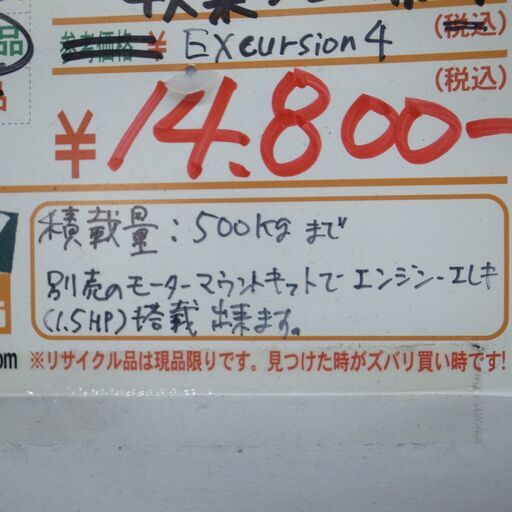 品
(税込)
参考価格 ¥ EXcursion4
(税込)
¥14.800-
積載量:500kgまで
別売のモーターマウントキットでエンジン・エレキ
(1.5HP)搭載出来ます。
om ※リサイクル品は現品限りです。見つけた時がズバリ買い時です!